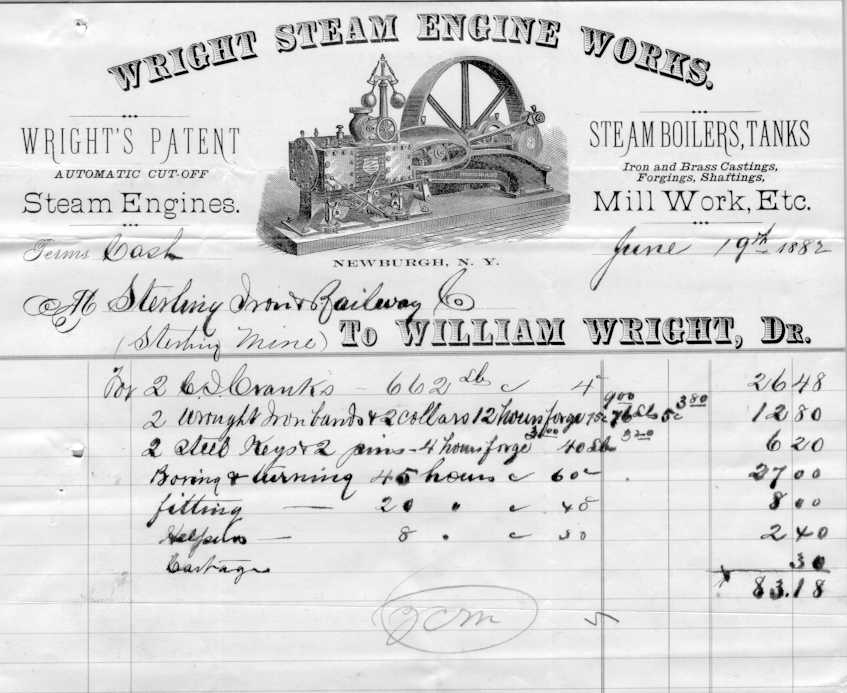 WRIGHT STEAM ENGINE WORKS.
WRIGHT'S PATENT
AUTOMATIC CUT-OFF
Steam Engines.
STEAM BOILERS, TANKS
Iron and Brass Castings,
Forgings, Shaftings,
Mill Work, Etc.
NEWBURGH, N. Y.
Terms Cash
June 19th 1882
M Sterling Iron & Railway Co
(Sterling Mine) To WILLIAM WRIGHT, Dr.
For 2 C.I. Cranks - 662 lbs c 4c 26 48
2 Wrought Iron bands & 2 collars 12 hours forge 75c 9.00 76 lbs 5c 3.80 12 80
2 Steel Keys & 2 pins - 4 hours forge 3.00 40 lb 3.20 6 20
Boring & turning 45 hours c 60c 27 00
fitting — 20 " c 40 8 00
Helpers — 8 " c 30 2 40
Cartage 30
83.18